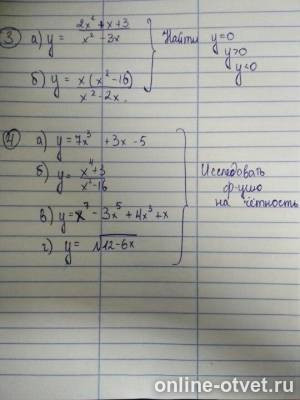 ③ а) y = (2x² + x + 3)/(x² - 3x)
б) y = x(x² - 16)/(x² - 2x)
Найти y=0
y>0
y<0
④ а) y = 7x³ + 3x - 5
б) y = (x⁴ + 3)/(x² - 16)
в) y = x⁷ - 3x⁵ + 4x³ + x
г) y = √(12 - 6x)
Исследовать
ф-цию
на чётность
online-otvet.ru